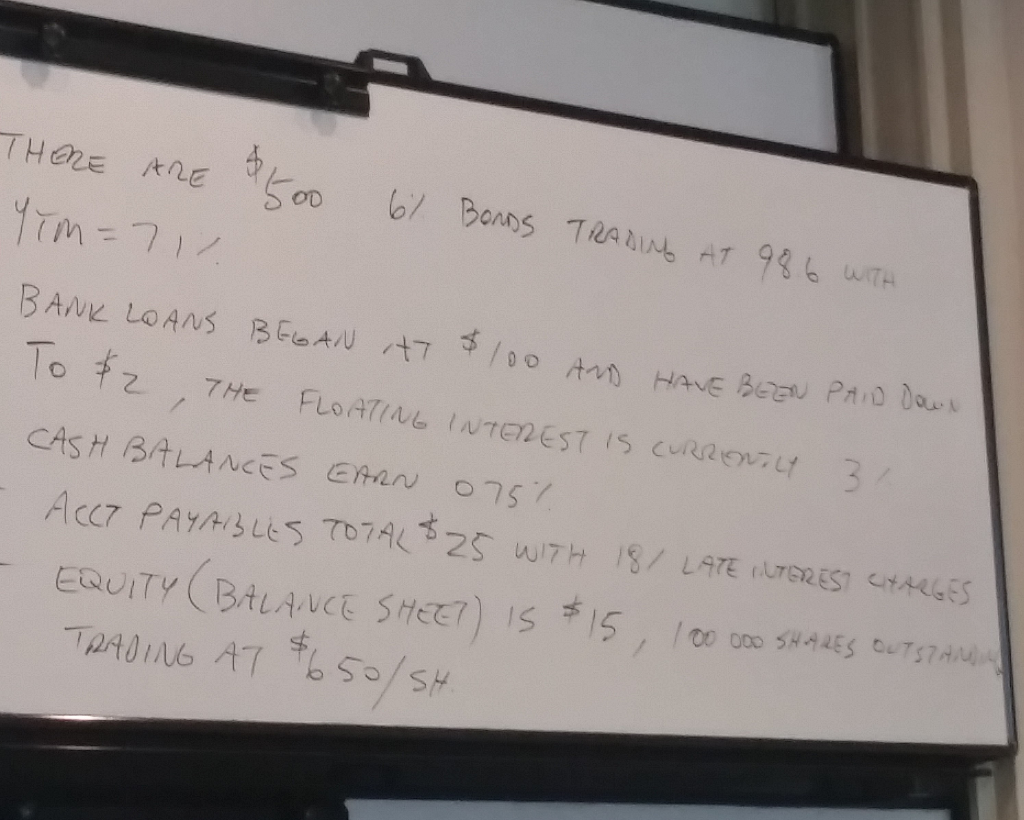 THERE ARE $500 6% BONDS TRADING AT 98.6 WITH
YTM = 7.1%
BANK LOANS BEGAN AT $100 AND HAVE BEEN PAID DOWN
TO $2, THE FLOATING INTEREST IS CURRENTLY 3%
CASH BALANCES EARN 0.75%
- ACCT PAYABLES TOTAL $25 WITH 18% LATE INTEREST CHARGES
- EQUITY (BALANCE SHEET) IS $15, 100 000 SHARES OUTSTANDING
TRADING AT $6.50/SH.